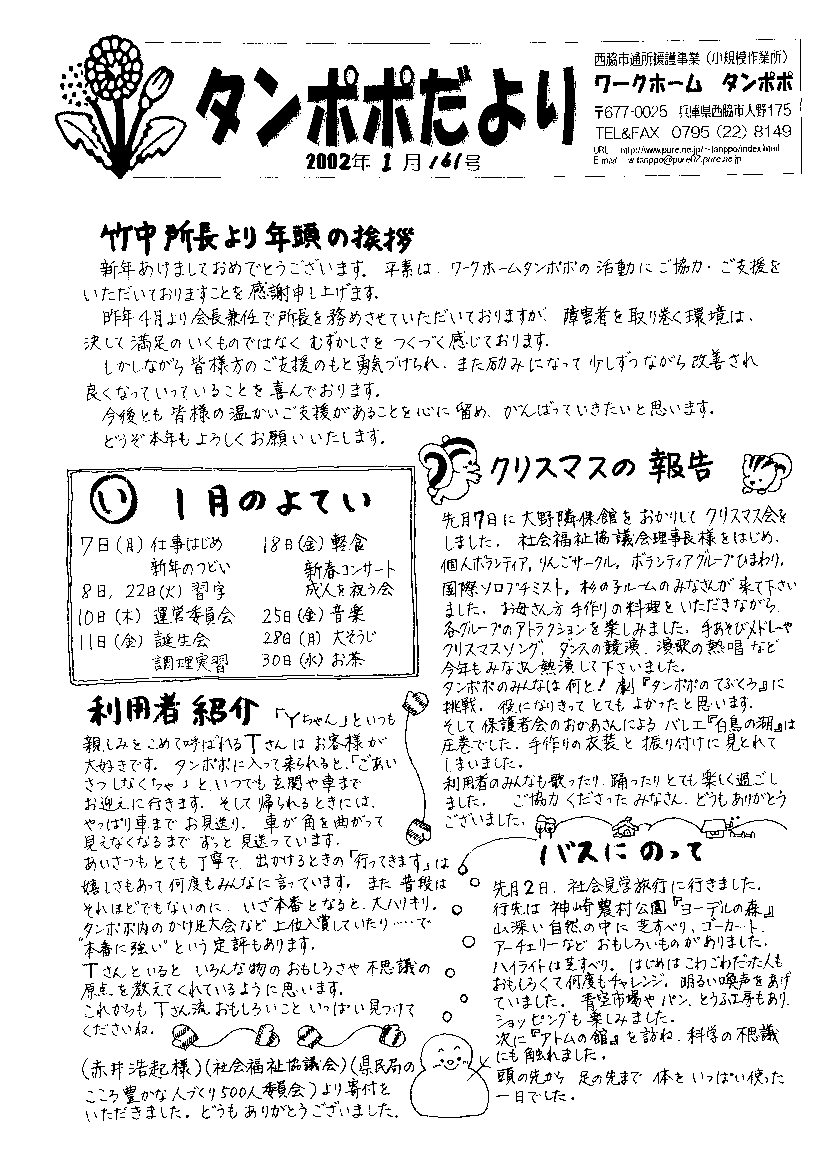 タンポポだより
2002年1月161号
西脇市通所援護事業（小規模作業所）
ワークホーム タンポポ
〒677-0025 兵庫県西脇市大野175
TEL&FAX 0795（22）8149
URL http://www.pure.ne.jp/~tanppo/index.html
E mail w.tanppo@pure02.pure.ne.jp
竹中所長より年頭の挨拶
新年あけましておめでとうございます。平素は、ワークホームタンポポの活動にご協力・ご支援を
いただいておりますことを感謝申し上げます。
昨年4月より会長兼任で所長を務めさせていただいておりますが、障害者を取り巻く環境は、
決して満足のいくものではなくむずかしさをつくづく感じております。
しかしながら皆様方のご支援のもと勇気づけられ、また励みになって少しずつながら改善され
良くなっていっていることを喜んでおります。
今後とも皆様の温かいご支援があることを心に留め、がんばっていきたいと思います。
どうぞ本年もよろしくお願いいたします。
い 1月のよてい
7日（月）仕事はじめ
新年のつどい
8日、22日（火）習字
10日（木）運営委員会
11日（金）誕生会
調理実習
18日（金）軽食
新春コンサート
成人を祝う会
25日（金）音楽
28日（月）大そうじ
30日（水）お茶
利用者紹介
「Yちゃん」といつも
親しみをこめて呼ばれるTさんはお客様が
大好きです。タンポポに入って来られると、「ごあい
さつしなくちゃ」といつでも玄関や車まで
お迎えに行きます。そして帰られるときには、
やっぱり車までお見送り。車が角を曲がって
見えなくなるまでずっと見送っています。
あいさつもとても丁寧で、出かけるときの「行ってきます」は
嬉しさもあって何度もみんなに言っています。また普段は
それほどでもないのに、いざ本番となると、大ハリキリ。
タンポポ内のかけ足大会など上位入賞していたり……で
“本番に強い”という定評もあります。
Tさんといるといろんな物のおもしろさや不思議の
原点を教えてくれているように思います。
これからもTさん流おもしろいこといっぱい見つけて
くださいね。
（赤井浩起様）（社会福祉協議会）（県民局の
こころ豊かな人づくり500人委員会）より寄付を
いただきました。どうもありがとうございました。
クリスマスの報告
先月7日に大野隣保館をおかりしてクリスマス会を
しました。社会福祉協議会理事長様をはじめ、
個人ボランティア、りんごサークル、ボランティアグループひまわり、
国際ソロプチミスト、杉の子ルームのみなさんが来て下さい
ました。お母さん方手作りの料理をいただきながら、
各グループのアトラクションを楽しみました。手あそびメドレーや
クリスマスソング、ダンスの競演、演歌の熱唱など
今年もみなさん熱演して下さいました。
タンポポのみんなは何と！劇『タンポポのてぶくろ』に
挑戦。役になりきってとてもよかったと思います。
そして保護者会のおかあさんによるバレエ『白鳥の湖』は
圧巻でした。手作りの衣装と振り付けに見とれて
しまいました。
利用者のみんなも歌ったり、踊ったりとても楽しく過ごし
ました。ご協力くださったみなさん、どうもありがとう
ございました。
バスにのって
先月2日、社会見学旅行に行きました。
行先は神崎農村公園『ヨーデルの森』
山深い自然の中に芝すべり、ゴーカート、
アーチェリーなどおもしろいものがありました。
ハイライトは芝すべり。はじめはこわごわだった人も
おもしろくて何度もチャレンジ。明るい喚声をあげ
ていました。青空市場やパン、とうふ工房もあり、
ショッピングも楽しみました。
次に『アトムの館』を訪ね、科学の不思議
にも触れました。
頭の先から足の先まで体をいっぱい使った
一日でした。